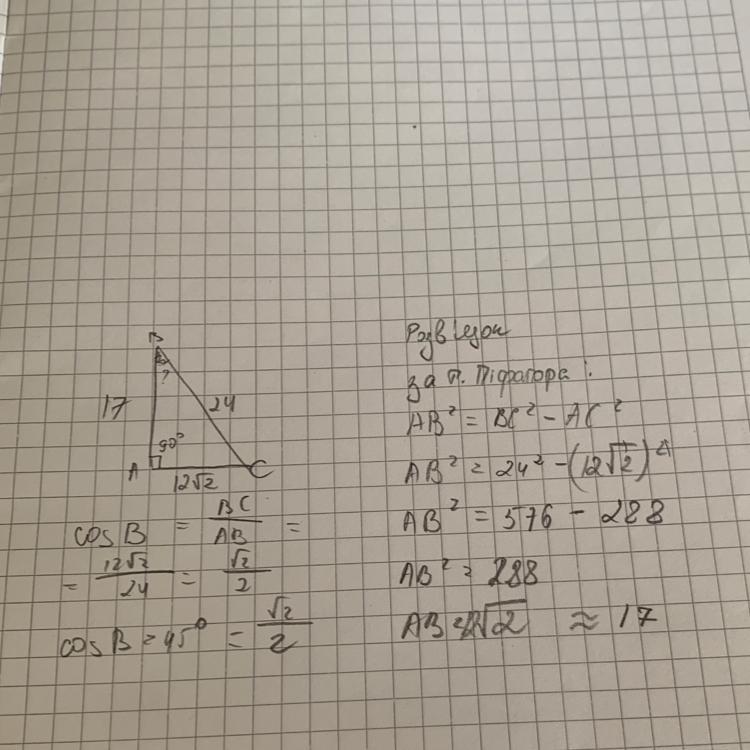 B
?
17
24
90°
A
C
12√2
cos B = BC/AB =
= 12√2/24 = √2/2
cos B = 45° = √2/2
Розв'язок
За т. Піфагора:
AB² = BC² - AC²
AB² = 24² - (12√2)²
AB² = 576 - 288
AB² = 288
AB = 12√2 ≈ 17